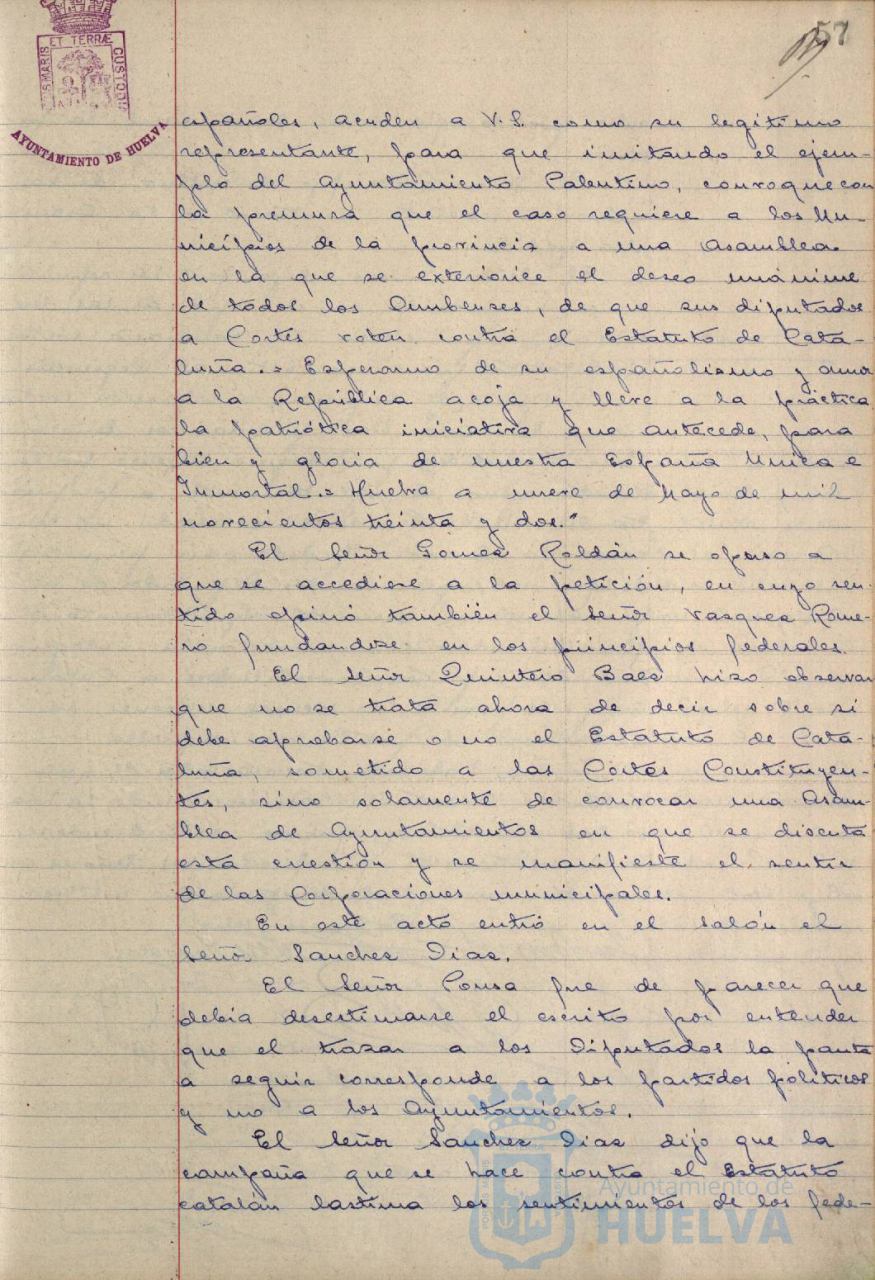 57
PORTUS MARIS ET TERRÆ CUSTODIA
AYUNTAMIENTO DE HUELVA
españoles, acuden a V.S. como su legitimo
representante, para que imitando el ejem-
plo del Ayuntamiento Palentino, convoque con
la premura que el caso requiere a los Mu-
nicipios de la provincia a una Asamblea
en la que se exteriorice el deseo unánime
de todos los Onubenses, de que sus diputados
a Cortes voten contra el Estatuto de Cata-
luña.= Esperamos de su españolismo y amor
a la República acoja y lleve a la práctica
la patriótica iniciativa que antecede, para
bien y gloria de nuestra España Unica e
Inmortal.= Huelva a nueve de Mayo de mil
novecientos treinta y dos."
El Señor Gómez Roldán se opuso a
que se accediese a la petición, en cuyo sen-
tido opinó también el Señor Vazquez Rome-
ro fundandose en los principios federales.
El Señor Quintero Baez hizo observar
que no se trata ahora de decir sobre si
debe aprobarse o no el Estatuto de Cata-
luña, sometido a las Cortes Constituyen-
tes, sino solamente de convocar una Asam-
blea de Ayuntamientos en que se discuta
esta cuestión y se manifieste el sentir
de las Corporaciones municipales.
En este acto entró en el salón el
Señor Sanchez Diaz.
El Señor Ponsa fue de parecer que
debia desestimarse el escrito por entender
que el trazar a los Diputados la pauta
a seguir corresponde a los partidos politicos
y no a los Ayuntamientos.
El Señor Sanchez Diaz dijo que la
campaña que se hace contra el Estatuto
catalán lastima los sentimientos de los fede-
Ayuntamiento de
HUELVA